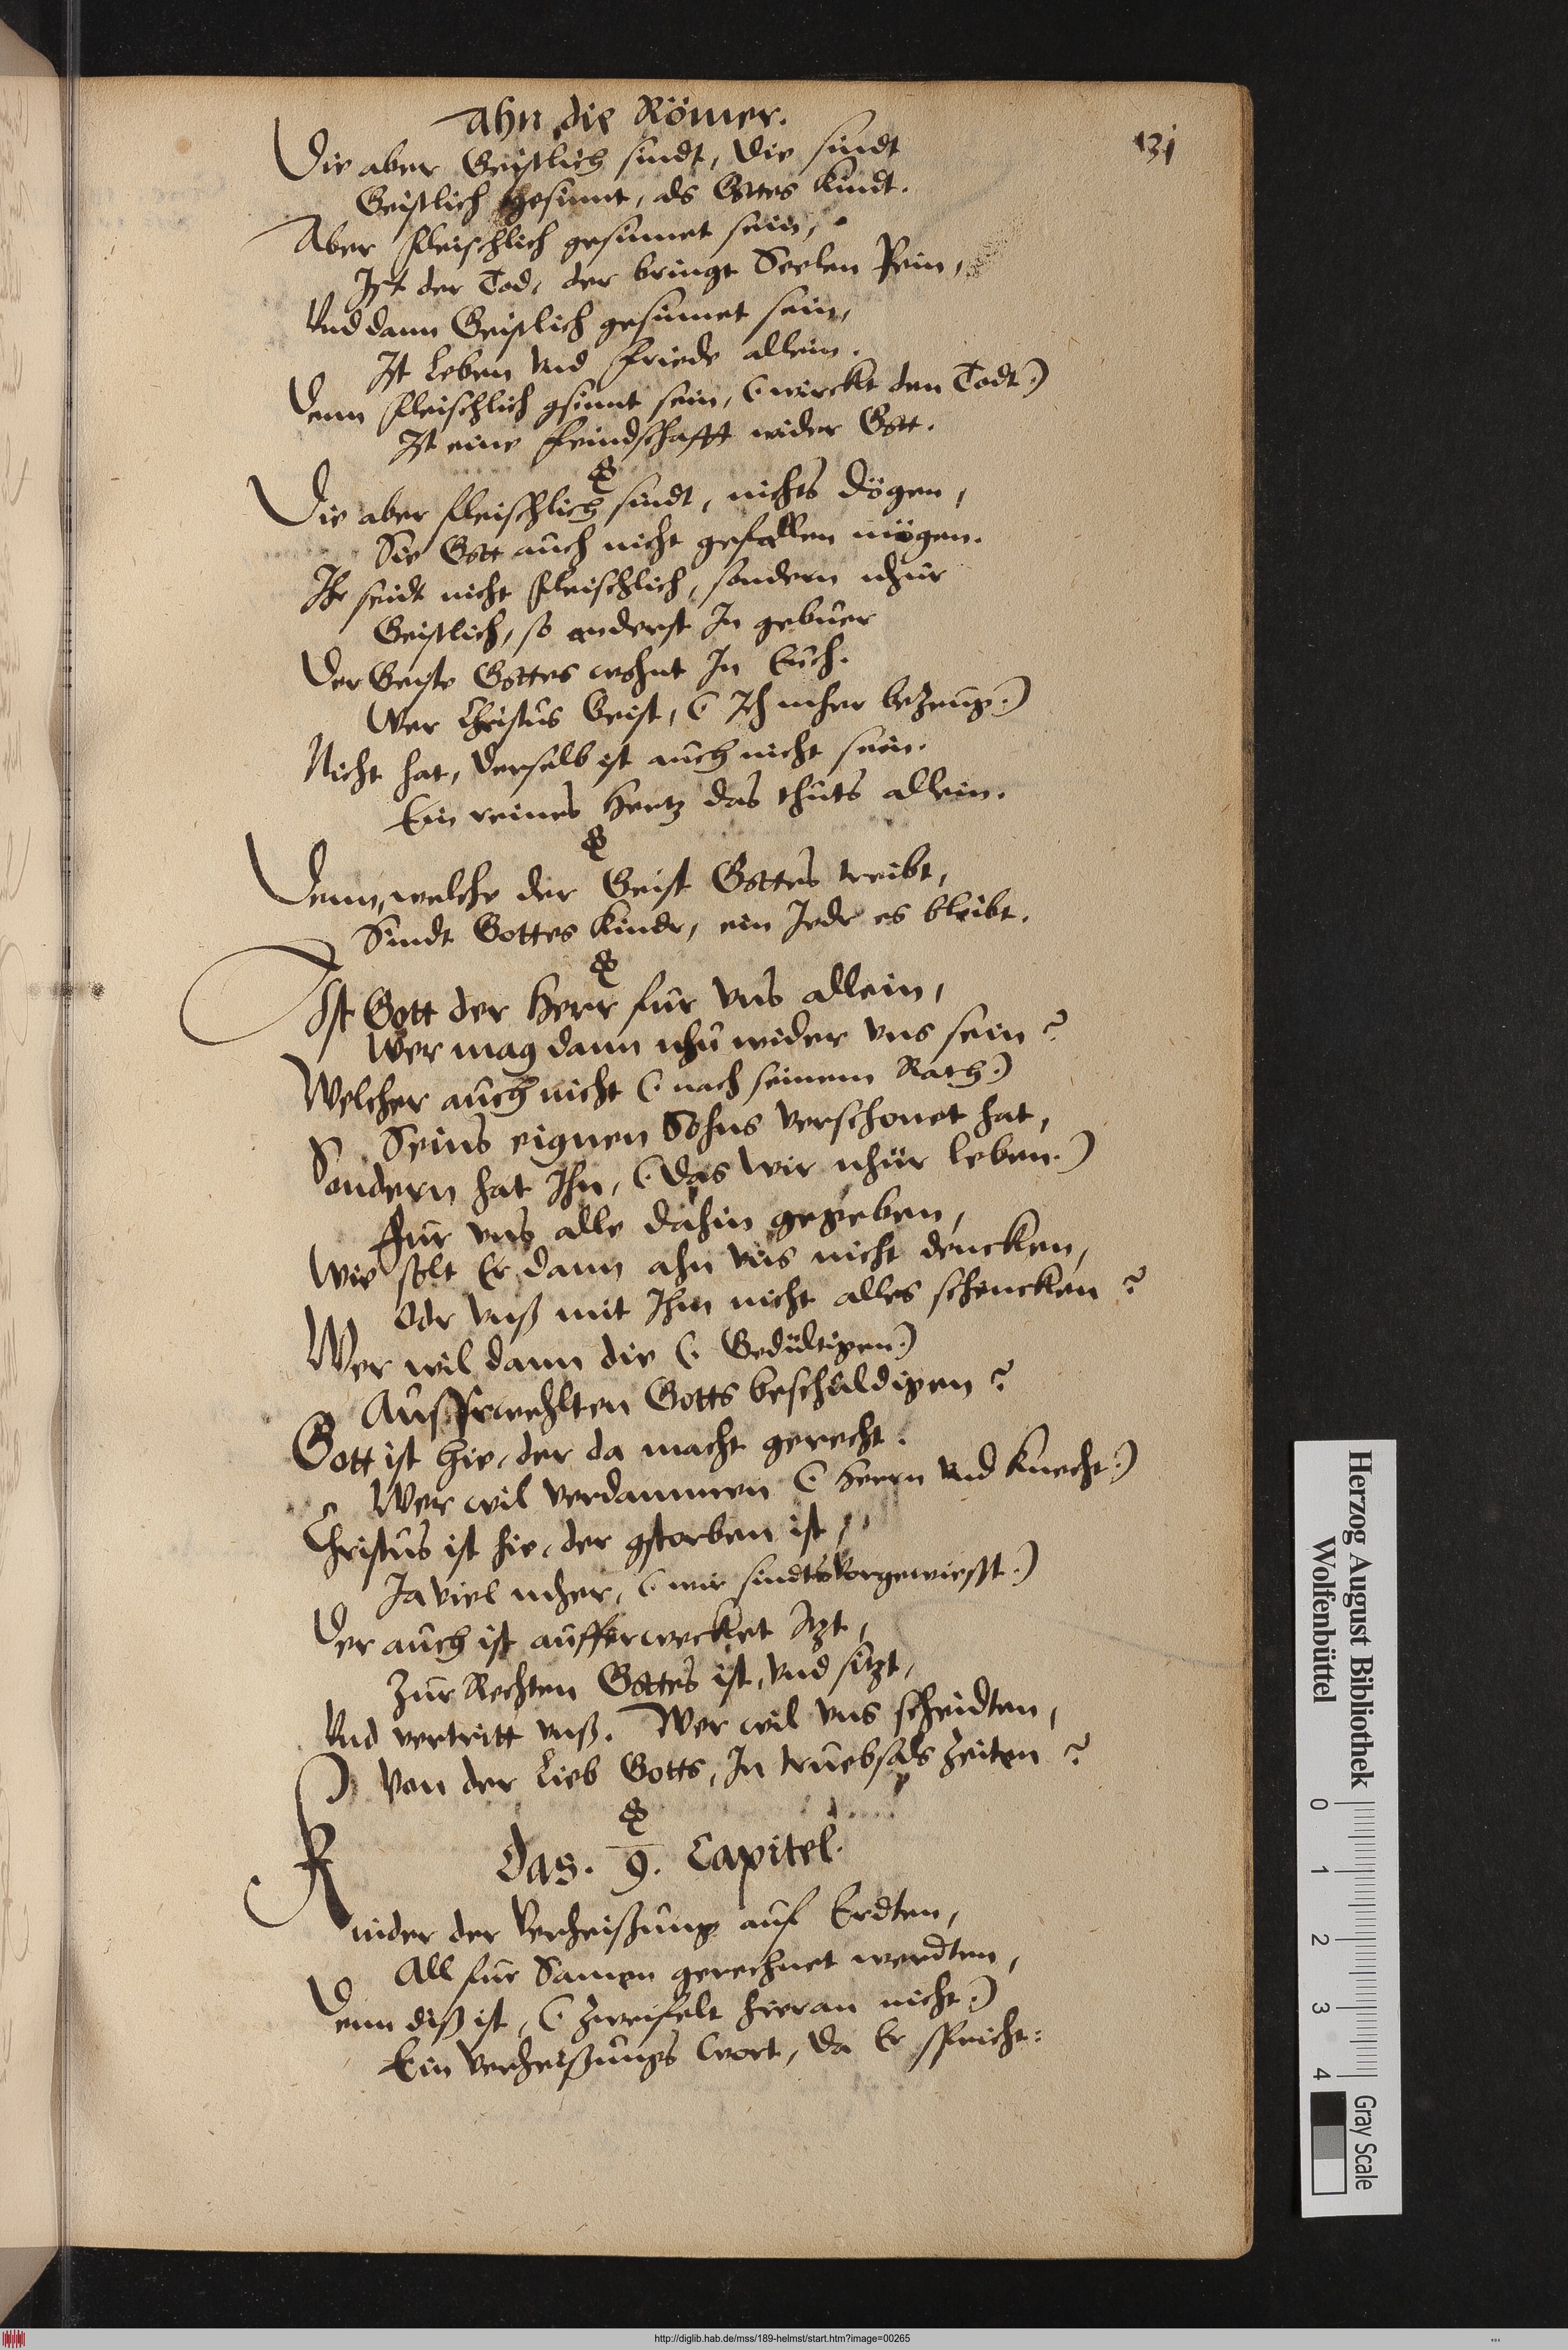 Ahn die Römer.
131
Die aber Geistlich sindt, die sindt
Geistlich Gesinnt, als Gottes Kindt.
Aber fleischlich gesinnet sein,
Ist der Tod, der bringt Seelen Pein,
Vnd dann Geistlich gesinnet sein,
Ist Leben vnd friede allein.
Denn fleischlich gsinnt sein, (wirckt den Todt)
Ist eine feindschafft wider Gott.
Die aber fleischlich sindt, nichts dögen,
Sie Gott auch nicht gefallen mögen.
Ihr seidt nicht fleischlich, sondern nhur
Geistlich, so anderst In gebuer
Der Geiste Gottes wohnt In Euch.
Wer Christus Geist, (Ich mher bezeug)
Nicht hat, derselb ist auch nicht sein.
Ein reines Hertz das thuts allein.
Denn, welche der Geist Gottes treibt,
Sindt Gottes Kindr, ein Jedr es bleibt.
Ist Gott der Herr fur vns allein,
Wer mag dann nhu wider vns sein?
Welcher auch nicht (nach seinem Rath)
Seins eignen Sohns verschonet hat,
Sondern hat Ihn, (das wir nhur leben)
Fur vns alle dahin gegeben,
Wie solt Er dann ahn vns nicht dencken,
Odr vnß mit Ihm nicht alles schencken?
Wer wil dann die (Gedültigen)
Außerwehlten Gotts beschuldigen?
Gott ist hie, der da macht gerecht.
Wer wil verdammen (Herrn vnd Knecht)
Christus ist hie, der gstorben ist,
Ja viel mher, (wir sindts vorgewisst)
Der auch ist aufferwecket Itzt,
Zur Rechten Gottes ist, vnd sitzt,
Vnd vertritt vnß. Wer wil vns scheidten,
Von der Lieb Gotts, In truebsals Zeiten?
Das. 9. Capitel.
Kinder der Verheißung auf Erdten,
All fur Samen gerechnet werdten,
Denn diß ist, (zweifelt hieran nicht)
Ein Verheißungs Wort, da Er spricht:
Herzog August Bibliothek
Wolfenbüttel
0 1 2 3 4
Gray Scale
http://diglib.hab.de/mss/189-helmst/start.htm?image=00265